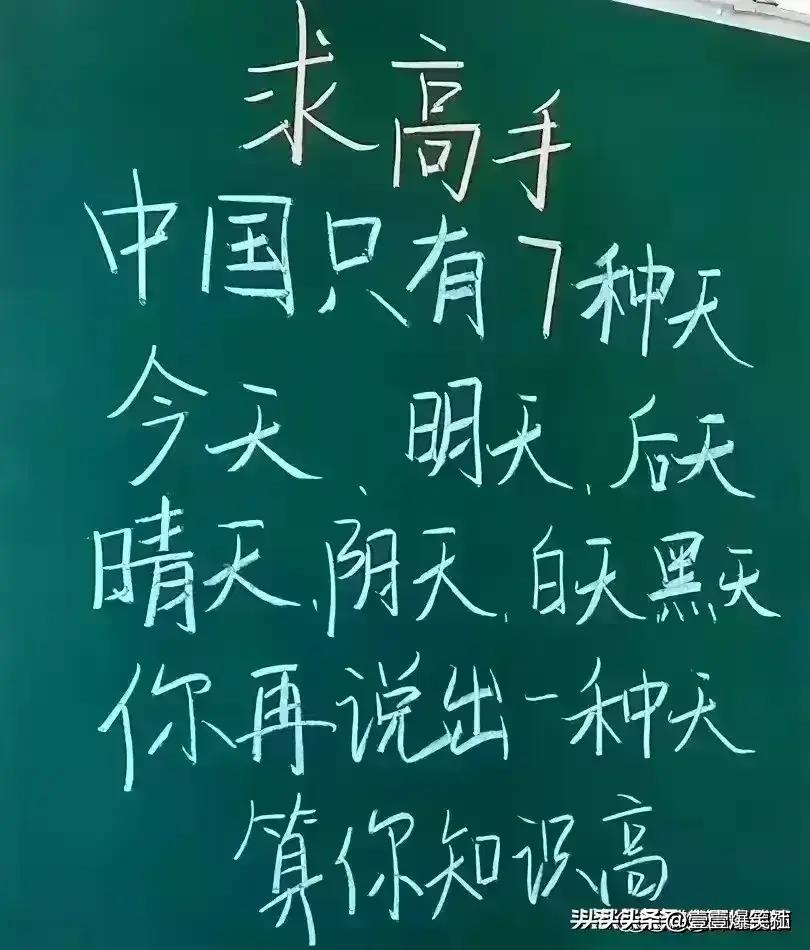 求高手
中国只有7种天
今天、明天、后天
晴天、阴天、白天黑天
你再说出一种天
算你知识高
头条@壹壹爆笑